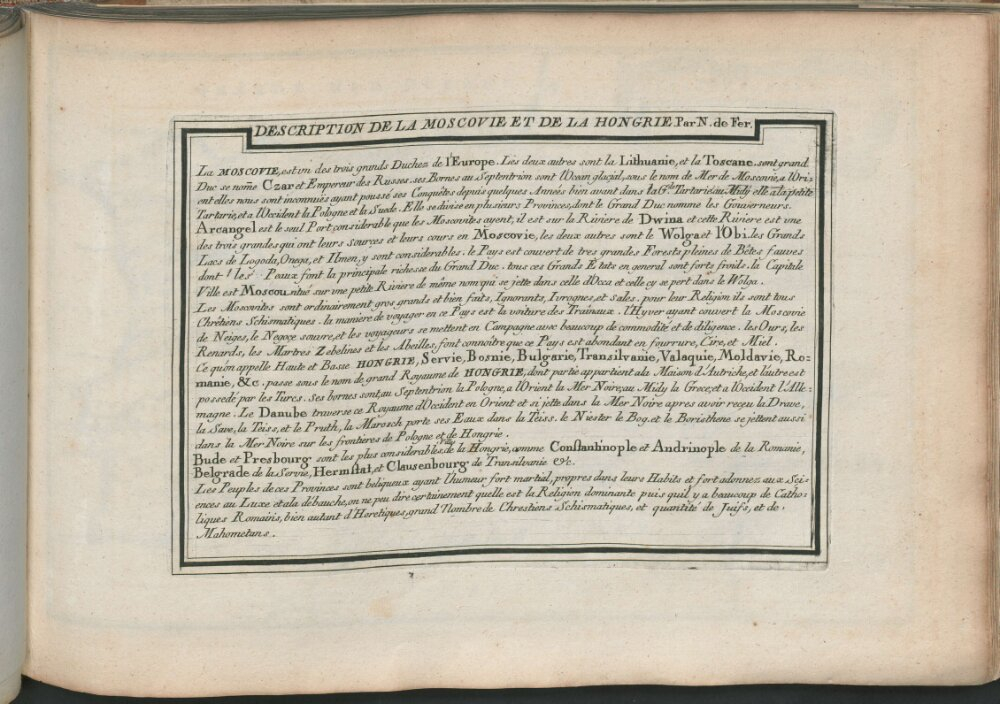 DESCRIPTION DE LA MOSCOVIE ET DE LA HONGRIE Par N. de Fer.
La MOSCOVIE, est un des trois grands Duchez de l'Europe. Les deux autres sont la Lithuanie, et la Toscane. son grand
Duc se nom̃e Czar et Empereur des Russes. ses Bornes au Septentrion sont l'Ocean glacial, sous le nom de Mer de Moscovie, a l'Ori-
ent elles nous sont inconnuës ayant poussé ses Conquêtes depuis quelques Années bien avant dans la Gde. Tartarie au Midy elle a la petite
Tartarie, et a l'Occident la Pologne et la Suede. Elle se divise en plusieurs Provinces, dont le Grand Duc nomme les Gouverneurs.
Arcangel est le seul Port considerable que les Moscovites ayent, il est sur la Riviere de Dwina et cette Riviere est une
des trois grandes qui ont leurs sources et leurs cours en Moscovie, les deux autres sont le Wolga et l'Obi. les Grands
Lacs de Logoda, Onega, et Ilmen, y sont considerables. le Pays est couvert de tres grandes Forests pleines de Bêtes fauves
dont les Peaux font la principale richesse du Grand Duc. tous ces Grands Etats en general sont forts froids. la Capitale
Ville est Moscou, situé sur une petite Riviere de même nom qui se jette dans celle d'Occa et celle cy se pert dans le Wolga.
Les Moscovites sont ordinairement gros grands et bien faits, Ignorants, Ivrognes, et Sales. pour leur Religion ils sont tous
Chrêtiens Schismatiques. la maniere de voyager en ce Pays est la voiture des Traînaux. l'Hyver ayant couvert la Moscovie
de Neiges, le Negoce s'ouvre, et les voyageurs se mettent en Campagne avec beaucoup de commodité et de diligence. les Ours, les
Renards, les Martres Zebelines et les Abeilles, font connoître que ce Pays est abondant en fourrure, Cire, et Miel.
Ce qu'on appelle Haute et Basse HONGRIE, Servie, Bosnie, Bulgarie, Transilvanie, Valaquie, Moldavie, Ro-
manie, &c. passe sous le nom de grand Royaume de HONGRIE, dont partie appartient a la Maison d'Autriche, et l'autre est
possedé par les Turcs. Ses bornes sont, au Septentrion la Pologne, a l'Orient la Mer Noire, au Midy la Grece, et a l'Occident l'Alle-
magne. Le Danube traverse ce Royaume d'Occident en Orient et si jette dans la Mer Noire apres avoir reçeu la Drave,
la Save, la Teiss, et le Pruth, la Marosch porte ses Eaux dans la Teiss. le Niester le Bog, et le Boristhene se jettent aussi
dans la Mer Noire sur les frontieres de Pologne et de Hongrie.
Bude et Presbourg sont les plus considerables de la Hongrie, comme Constantinople et Andrinople de la Romanie,
Belgrade de la Servie, Hermstat, et Clausenbourg de Transilvanie &c.
Les Peuples de ces Provinces sont beliqueux ayant l'humeur fort martial, propres dans leurs Habits et fort adonnez aux Sci-
ences au Luxe et a la débauche, on ne peu dire certainement quelle est la Religion dominante puis quil y a beaucoup de Catho-
liques Romains, bien autant d'Heretiques, grand Nombre de Chrestiens Schismatiques, et quantité de Juifs, et de
Mahometans.